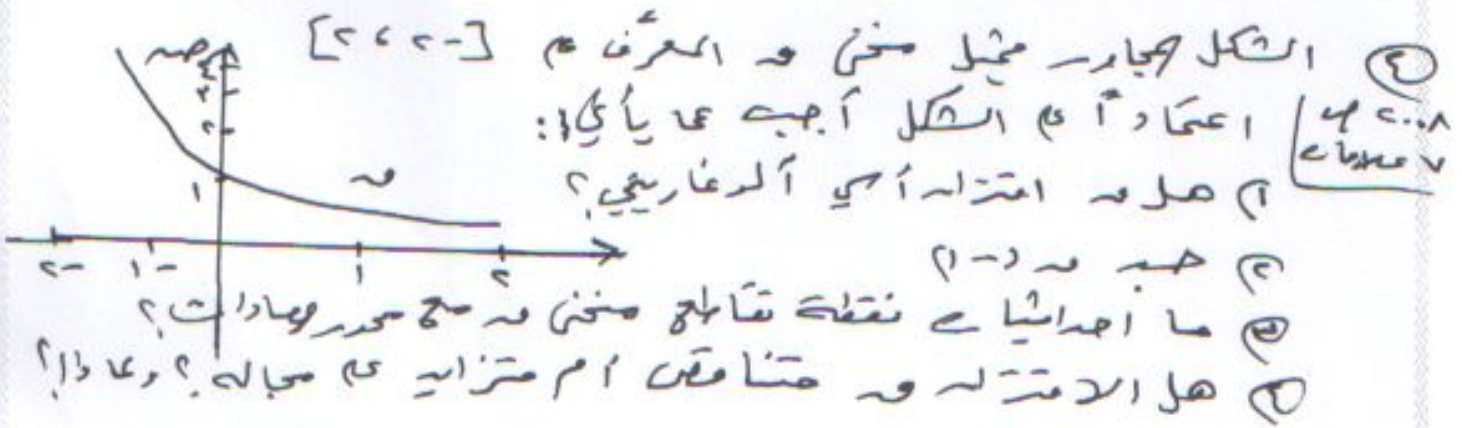 ٤) الشكل المجاور يمثل منحنى ق المعرَّف على [-٢ ، ٢]
٢٠٠٨ ص
اعتماداً على الشكل أجب عما يأتي:
٧ علامات
١) هل ق اقتران أسي أم لوغاريتمي؟
٢) جد ق(-١)
٣) ما إحداثيات نقطة تقاطع منحنى ق مع محور الصادات؟
٤) هل الاقتران ق متناقص أم متزايد على مجاله؟ ولماذا؟
ص
٤
٣
٢
١
ق
-٢ -١ ١ ٢